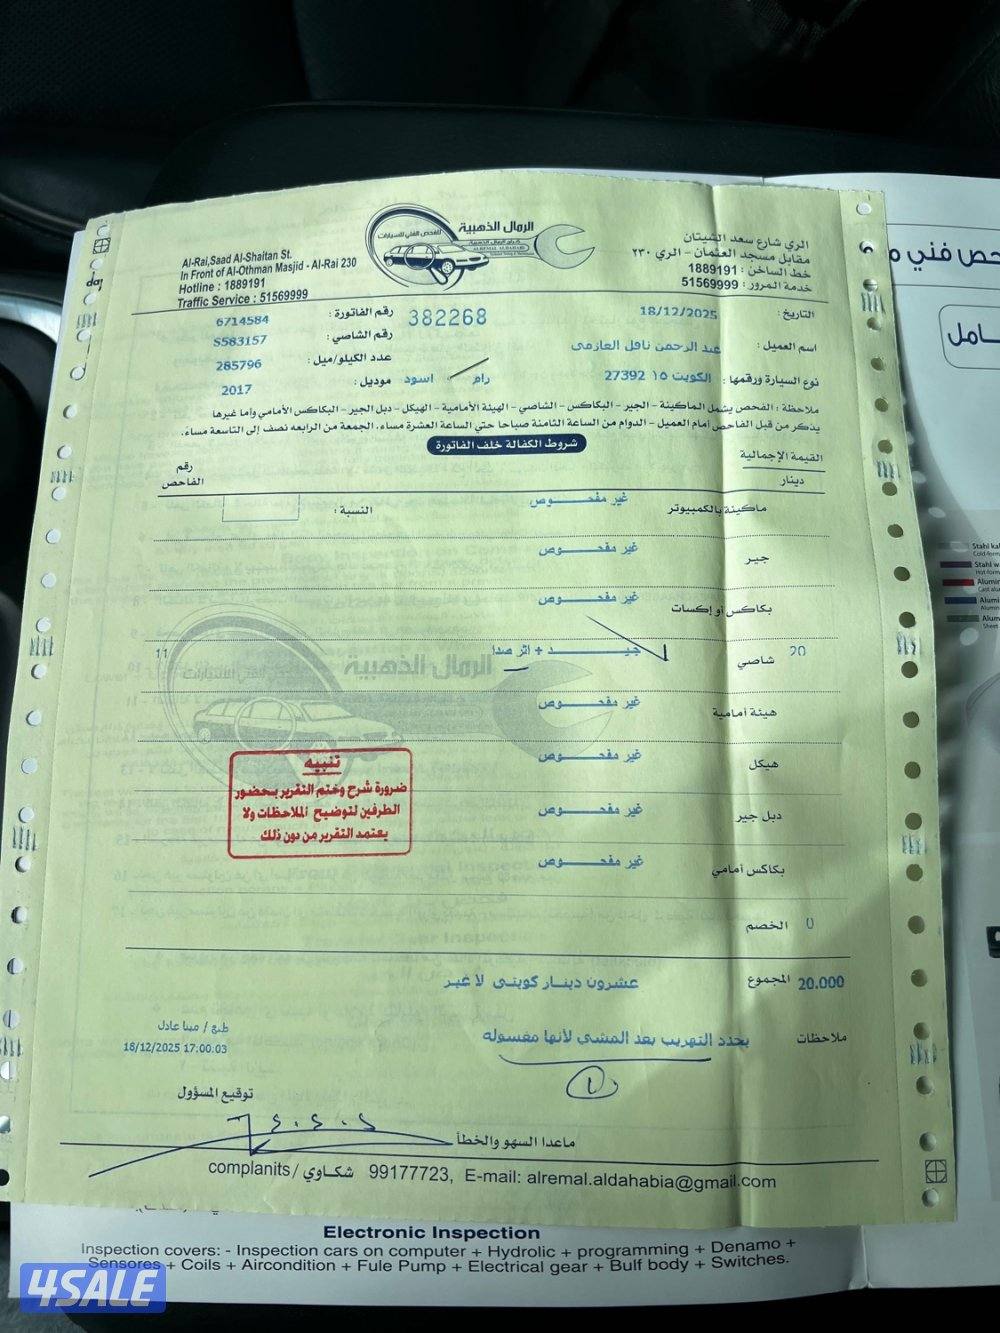 الرمال الذهبية
للفحص الفني للسيارات
كراج الرمال الذهبية
AL REMAL ALDAHABI
Al-Rai,Saad Al-Shaitan St.
In Front of Al-Othman Masjid - Al-Rai 230
Hotline : 1889191
Traffic Service : 51569999
الري شارع سعد الشيتان
مقابل مسجد العثمان - الري ٢٣٠
خط الساخن : 1889191
خدمة المرور : 51569999
التاريخ : 18/12/2025
382268
رقم الفاتورة : 6714584
اسم العميل : عبد الرحمن نافل العازمى
رقم الشاصي : S583157
عدد الكيلو/ميل : 285796
نوع السيارة ورقمها : الكويت ١٥ 27392 رام اسود
موديل : 2017
ملاحظة : الفحص يشمل الماكينة - الجير - البكاكس - الشاصي - الهيئة الأمامية - الهيكل - دبل الجير - البكاكس الأمامي وما غيرها
يذكر من قبل الفاحص أمام العميل - الدوام من الساعة الثامنة صباحا حتي الساعة العشرة مساء، الجمعة من الرابعه نصف إلى التاسعة مساء.
شروط الكفالة خلف الفاتورة
القيمة الإجمالية
دينار
رقم الفاحص
ماكينة بالكمبيوتر غير مفحوص النسبة :
جير غير مفحوص
بكاكس أو إكسات غير مفحوص
20 شاصي جيد + اثر صدا 11
هيئة أمامية غير مفحوص
هيكل غير مفحوص
دبل جير غير مفحوص
بكاكس أمامي غير مفحوص
الرمال الذهبية
تنبيه
ضرورة شرح وختم التقرير بحضور
الطرفين لتوضيح الملاحظات ولا
يعتمد التقرير من دون ذلك
0 الخصم
20.000 المجموع عشرون دينار كويتى لا غير
ملاحظات يحدد التهريب بعد المشي لأنها مغسوله
طبع / مينا عادل
18/12/2025 17:00:03
توقيع المسؤول
ماعدا السهو والخطأ
complanits/ شكاوي 99177723, E-mail: alremal.aldahabia@gmail.com
Electronic Inspection
Inspection covers: - Inspection cars on computer + Hydrolic + programming + Denamo +
Sensores + Coils + Aircondition + Fule Pump + Electrical gear + Bulf body + Switches.
حص فني
امل
Stahl
Stahl
Alumin
Alumin
Alumi
Sheet
4SALE